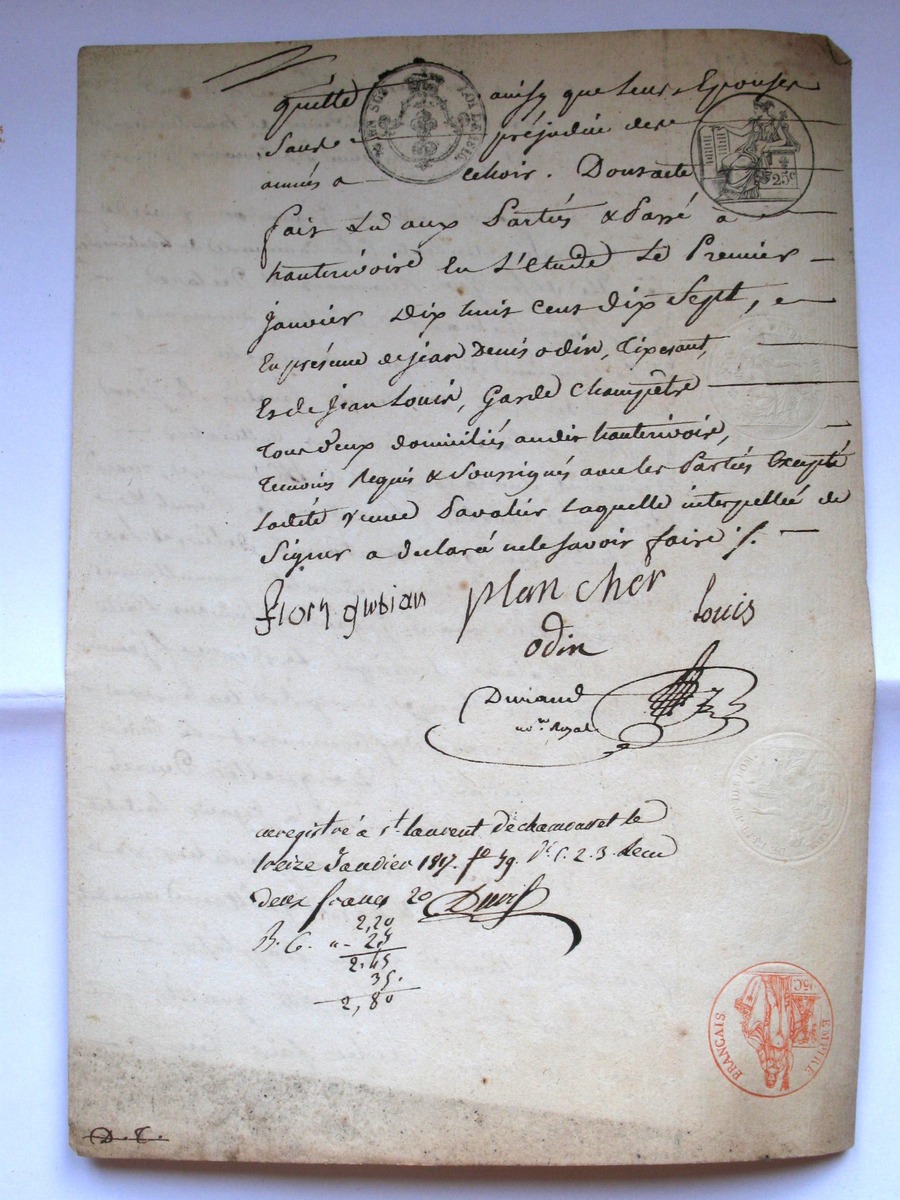 quitte ainsy que leurs Epouses
Sans préjudice des
années a echoir. Dont acte
fait Lu aux Parties & Passé a
hauterivoire En L'Etude Le Premier
Janvier Dix huit Cent Dix Sept,
En présence de jean Denis odin, Tixerant,
Et de Jean Louis, Garde Champêtre
Tous deux domiciliés audit hauterivoire,
Temoins Requis & Soussignés avec les Parties Excepté
Ladite veuve Pavalier Laquelle interpellée de
Signer a declaré ne le savoir faire /.
plancher
Louis
odin
Durand
no.re Royal
LOI DE 1816
25c
enregistré à st. Laurent de chamousset le
treize Janvier 1817. fo 49. Vo C. 2. 3. Recu
deux francs 20
2,20
B. C. " - 25
2.45
35.
2,80
EMPIRE
FRANÇAIS
D. T.